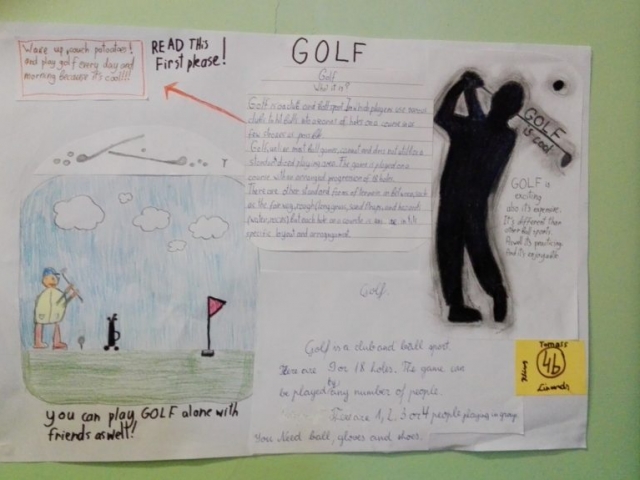 Wake up couch potatoes!
and play golf every day and
morning because it's cool!!!
READ THIS
First please!
GOLF
Golf
What is it?
Golf is a club and ball sport in which players use various
clubs to hit balls into a series of holes on a course in as
few strokes as possible.
Golf, unlike most ball games, cannot and does not utilize a
standardized playing area. The game is played on a
course with an arranged progression of 18 holes.
There are other standard forms of terrain in between, such
as the fairway, rough (long grass), sand traps, and hazards
(water, rocks) but each hole on a course is in its
specific layout and arrangement.
GOLF
is cool
GOLF is
exciting
also it's expensive.
It's different than
other ball sports.
and it's enjoyable.
Golf.
Golf is a club and ball sport.
There are 9 or 18 holes. The game can
by
be played any number of people.
There are 1, 2, 3 or 4 people playing in group.
You Need ball, gloves and shoes.
you can play GOLF alone with
friends as well!
Tomass
4b